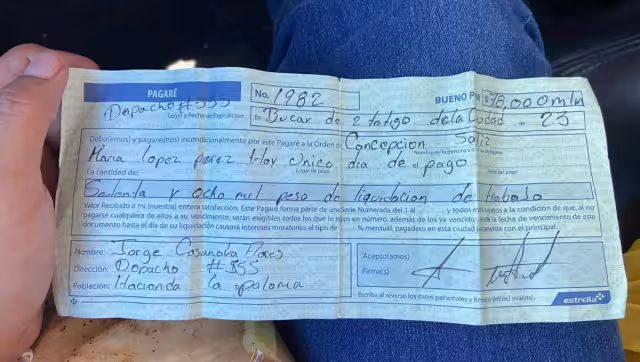 PAGARÉ
No. 1982
BUENO POR $ 78,000 mln
Depacho #355
Lugar y Fecha de Expedición
En Bucar de 2 tatigo de la Ciudad de 23
Debo(emos) y pagaré(mos) incondicionalmente por este Pagaré a la Orden de Concepcion Soliz
Maria Lopez perez Hoy Unico dia de pago
Lugar de pago
La cantidad de:
Setenta y ocho mil peso de liquidacion de trabado
Valor Recibido a mi (nuestra) entera satisfacción. Este Pagaré forma parte de una Serie Numerada del 1 al y todos están sujetos a la condición de que, al no
pagarse cualquiera de ellos a su vencimiento, serán exigibles todos los que le sigan en número, además de los ya vencidos, desde la fecha de vencimiento de este
documento hasta el día de su liquidación causará intereses moratorios al tipo de % mensual, pagadero en esta ciudad juntamente con el principal.
Nombre: Jorge Casanova Flores
Dirección: Depacho #355
Población: Hacienda la paloma
Acepto(amos)
Firma(s)
Escribir al reverso los datos personales y firma(s) del(los) aval(es).
estrella